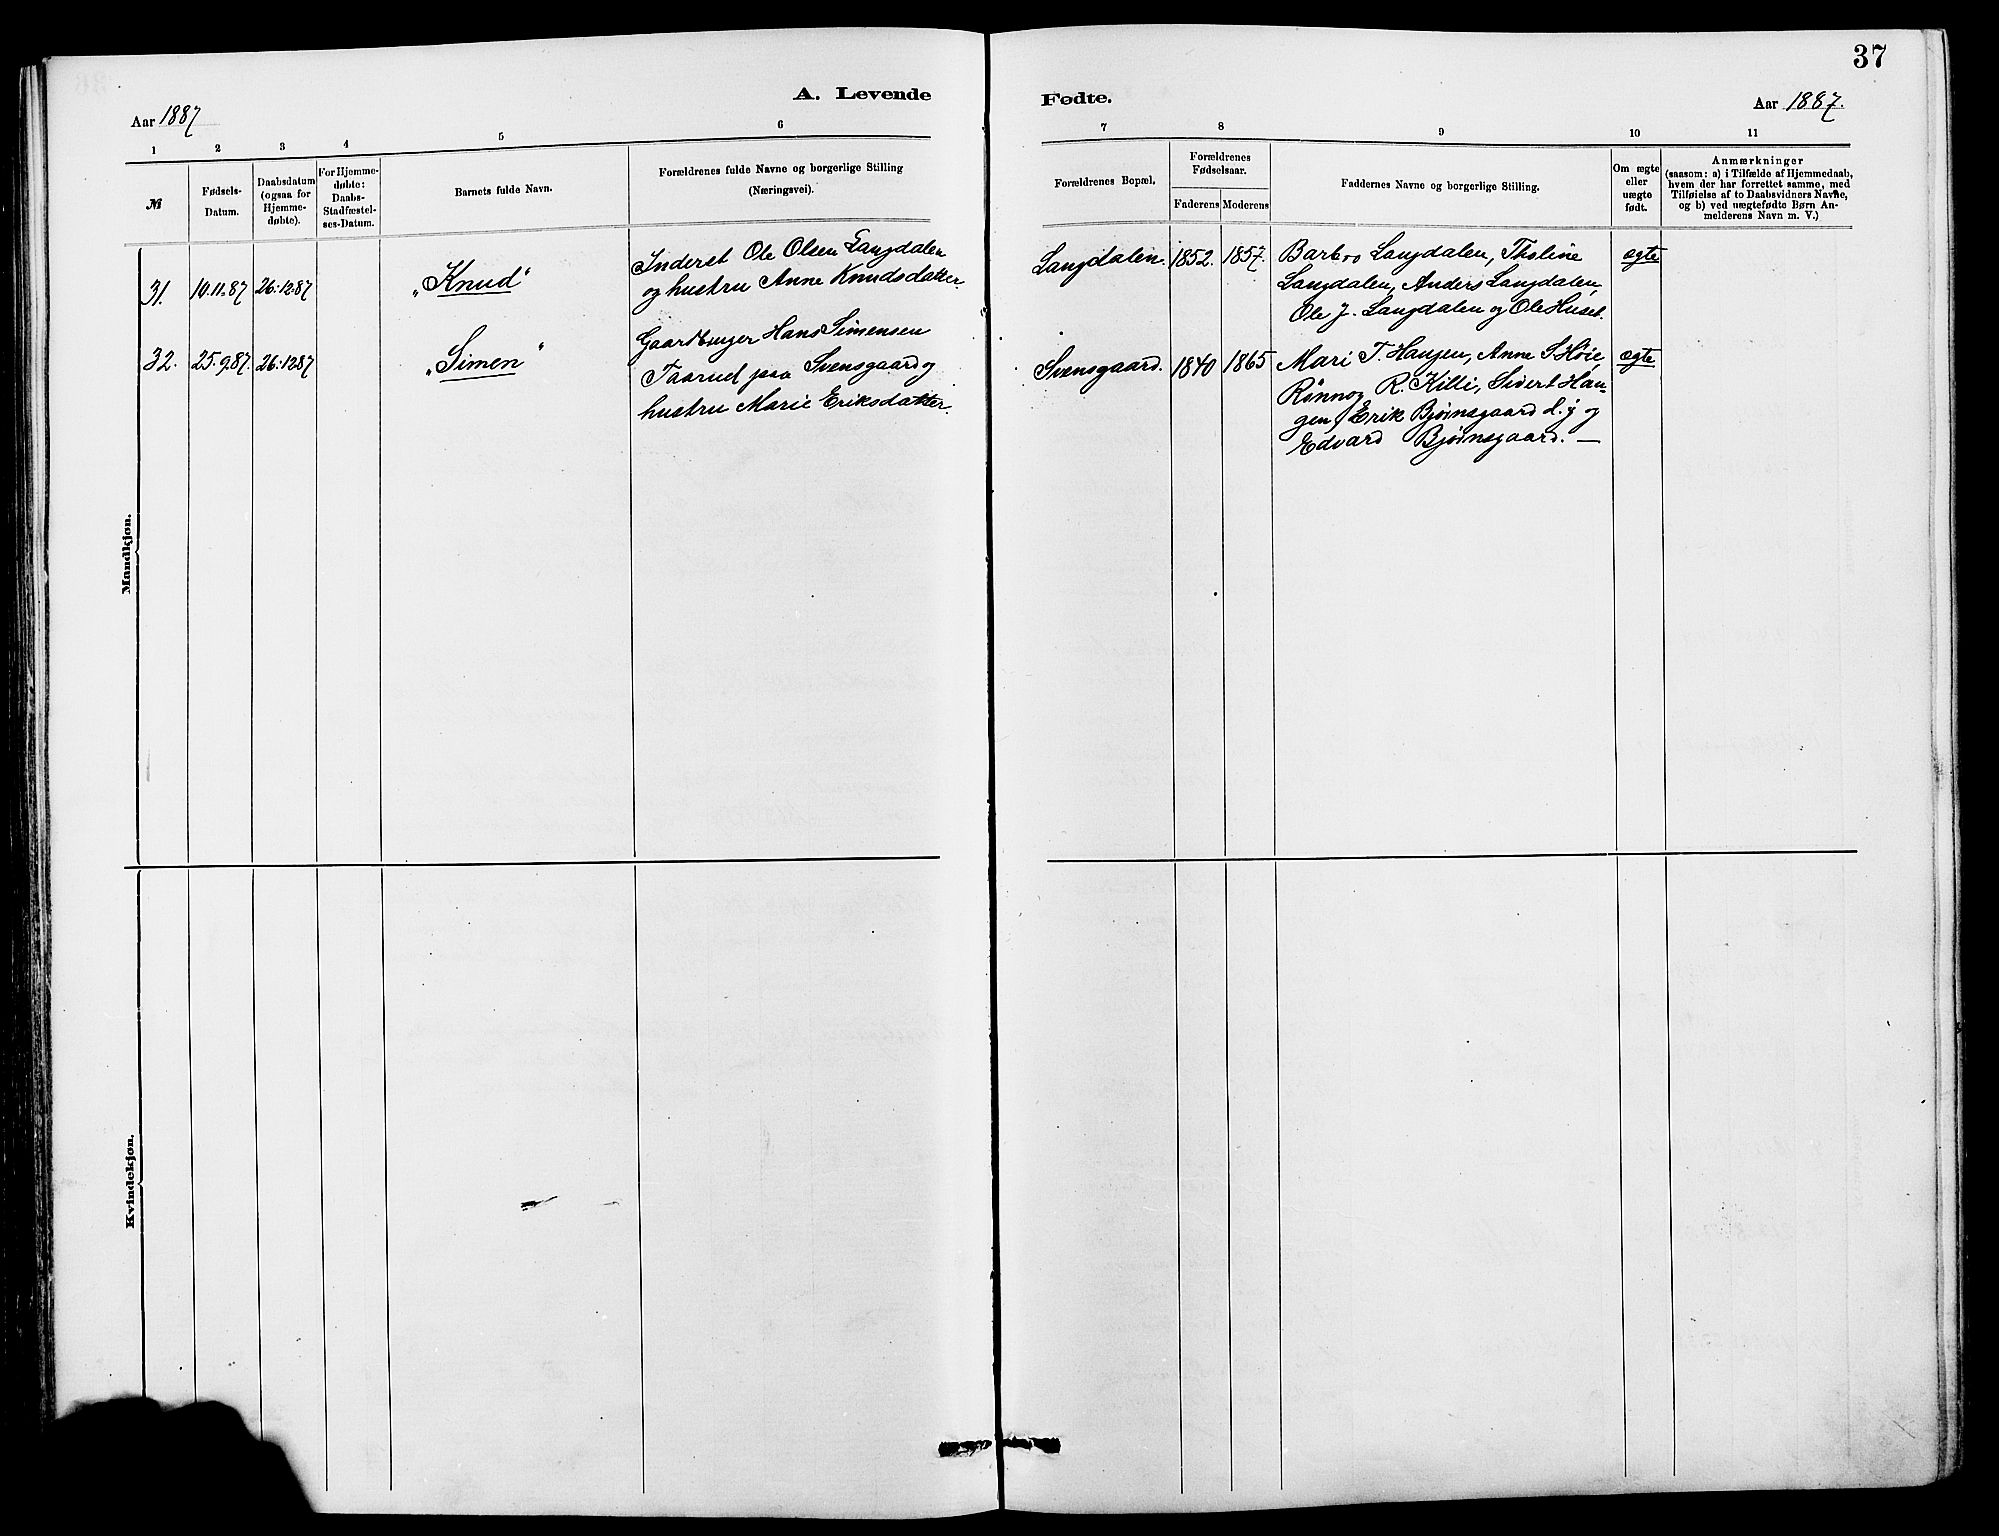 37
A. Levende
Fødte.
Aar 1887
Aar 1887.
1 2 3 4 5 6
7 8 9 10 11
№
Fødsels-
Datum.
Daabsdatum
(ogsaa for
Hjemme-
døbte).
For Hjemme-
døbte:
Daabs-
Stadfæstel-
ses-Datum.
Barnets fulde Navn.
Forældrenes fulde Navne og borgerlige Stilling
(Næringsvei).
Forældrenes Bopæl.
Forældrenes
Fødselsaar.
Faderens
Moderens
Faddernes Navne og borgerlige Stilling.
Om ægte
eller
uægte
født.
Anmærkninger
(saasom: a) i Tilfælde af Hjemmedaab,
hvem der har forrettet samme, med
Tilføielse af to Daabsvidners Navne,
og b) ved uægtefødte Børn An-
melderens Navn m. V.)
Mandkjøn.
31. 10.11.87 26.12 87 „Knud"
Inderst Ole Olsen Langdalen
og hustru Anne Knudsdatter.
Langdalen. 1852. 1857.
Barbro Langdalen, Tholine
Langdalen, Anders Langdalen,
Ole J. Langdalen og Ole Huset.
ægte
32. 25.9.87. 26.12 87 „Simen"
Gaardbruger Hans Simensen
Taarud paa Svensgaard og
hustru Marie Eriksdatter.
Svensgaard. 1840 1865
Mari T. Haugen, Anne S. Høie,
Rønnog R. Killi, Sivert Hau-
gen, Erik Bjørnsgaard d.y og
Edvard Bjørnsgaard. —
ægte
Kvindekjøn.